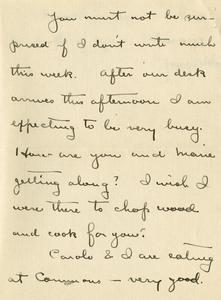 You must not be sur-
prised if I don't write much
this week. After our desk
arrives this afternoon I am
expecting to be very busy.
How are you and Marie
getting along? I wish I
were there to chop wood
and cook for you.
Carolo & I are eating
at Commons – very good.